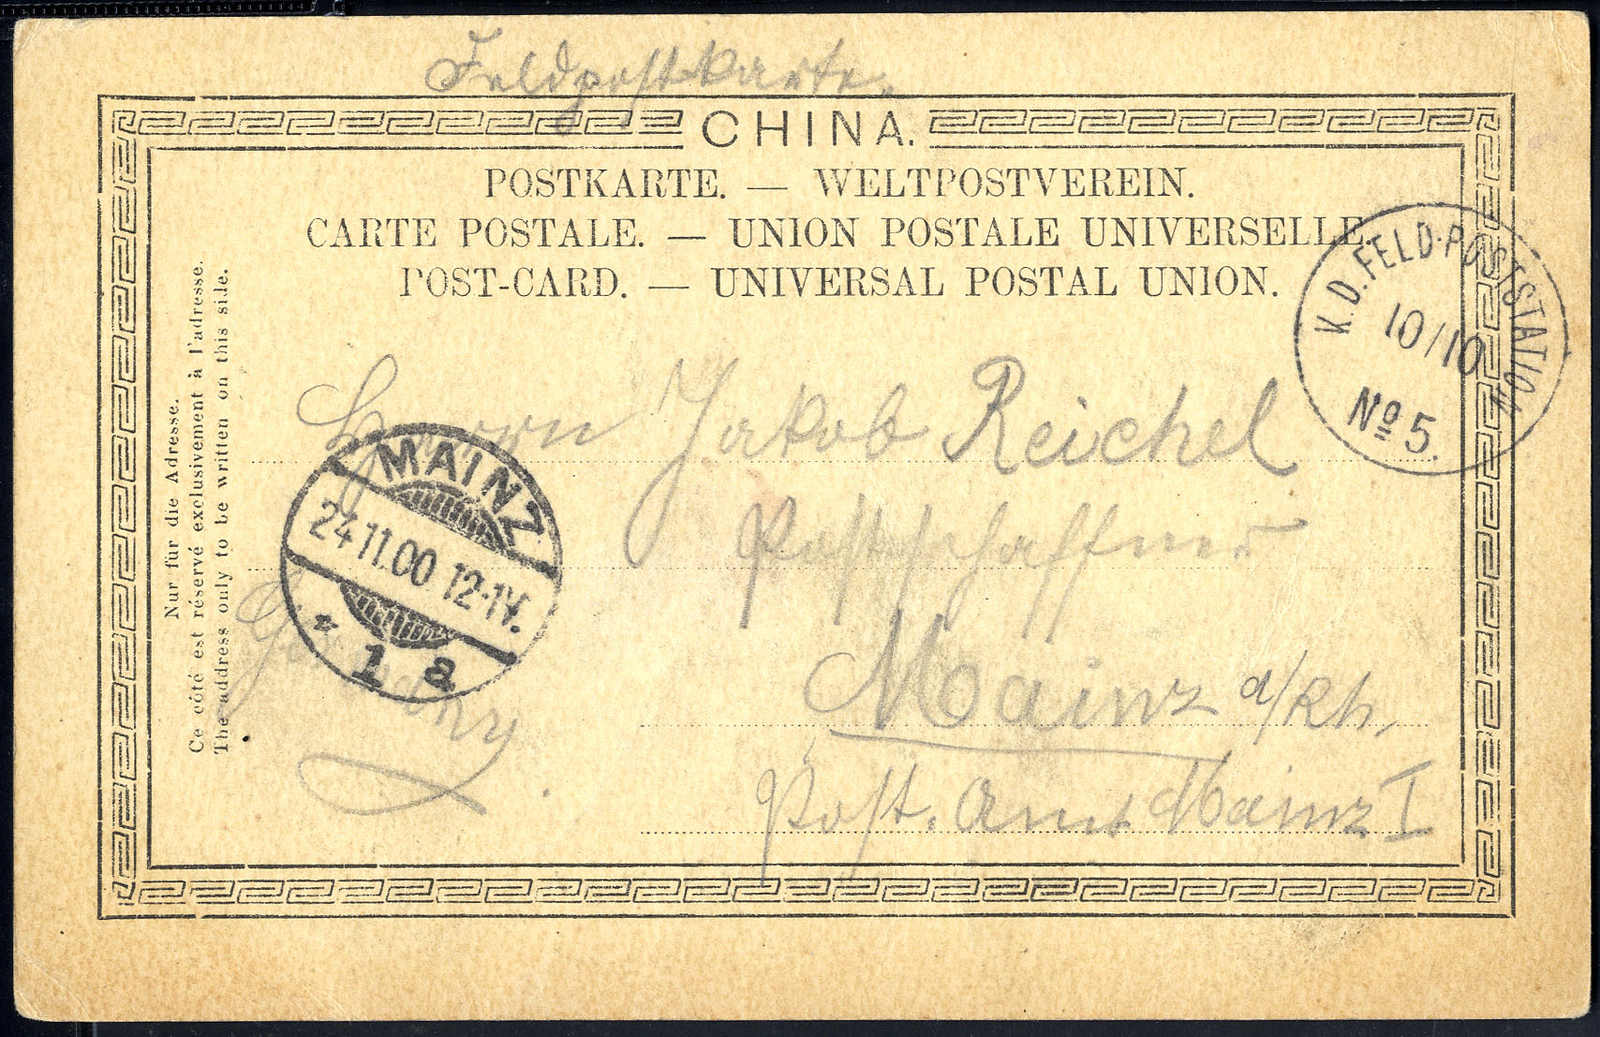 Feldpostkarte.
CHINA.
POSTKARTE. — WELTPOSTVEREIN.
CARTE POSTALE. — UNION POSTALE UNIVERSELLE.
POST-CARD. — UNIVERSAL POSTAL UNION.
K.D. FELD-POSTSTATION
10/10
No 5.
Nur für die Adresse.
Ce côté est réservé exclusivement à l'adresse.
The address only to be written on this side.
Herrn Jakob Reichel
Postschaffner
Mainz a/Rh,
Post. Amt Mainz I
MAINZ
24.11.00 12-1V.
* 1 a